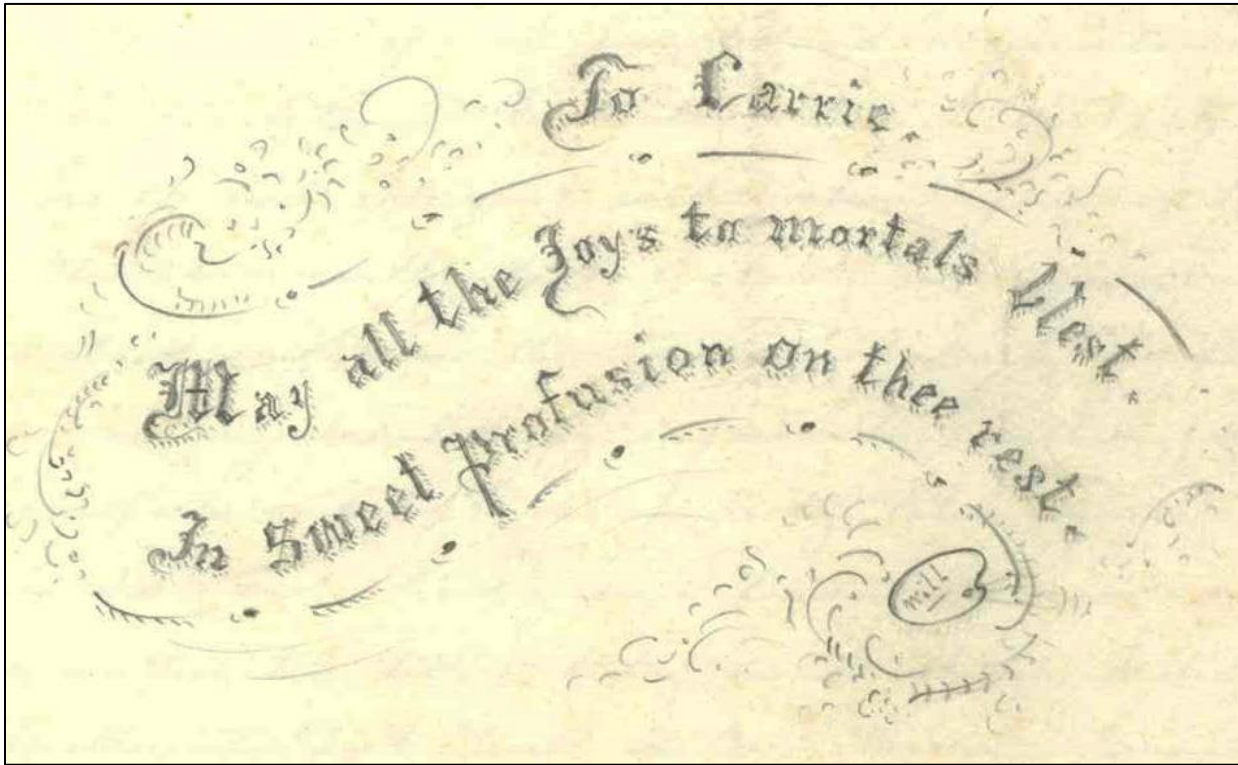 To Carrie.
May all the Joys to mortals blest.
In Sweet Profusion on thee rest.
Will